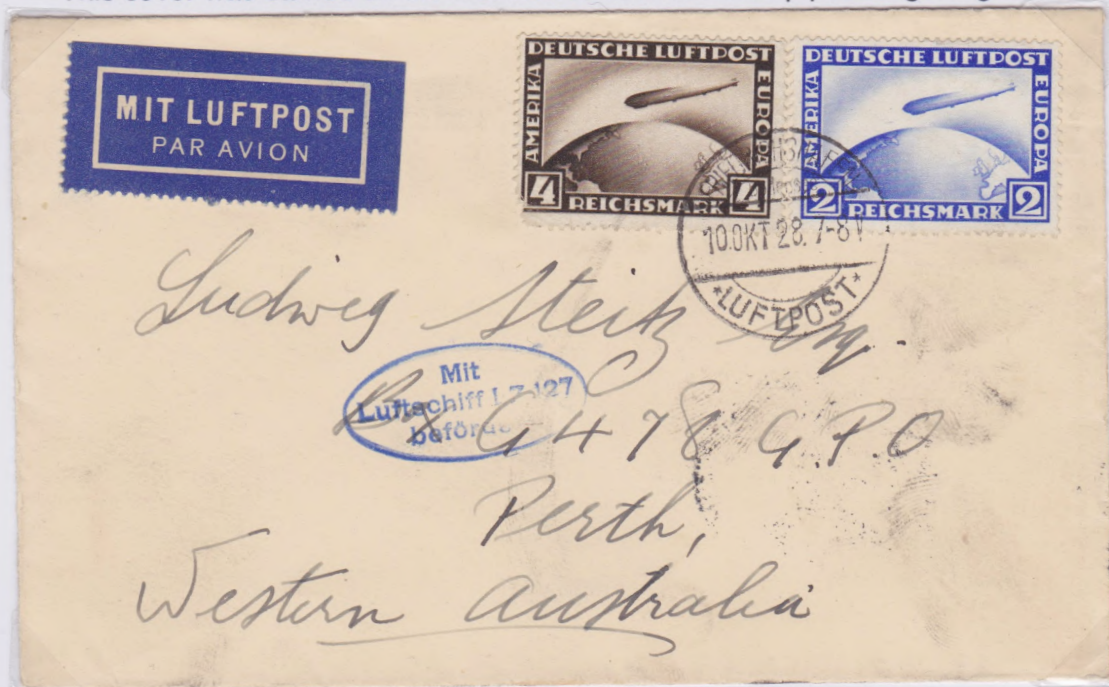 MIT LUFTPOST
PAR AVION
DEUTSCHE LUFTPOST
AMERIKA
EUROPA
4 REICHSMARK 4
DEUTSCHE LUFTPOST
AMERIKA
EUROPA
2 REICHSMARK 2
10.OKT 28. 7-8V
*LUFTPOST*
Ludwig Steitz Esq.
Mit
Luftschiff LZ 127
Box G 478 G.P.O
Perth,
Western Australia